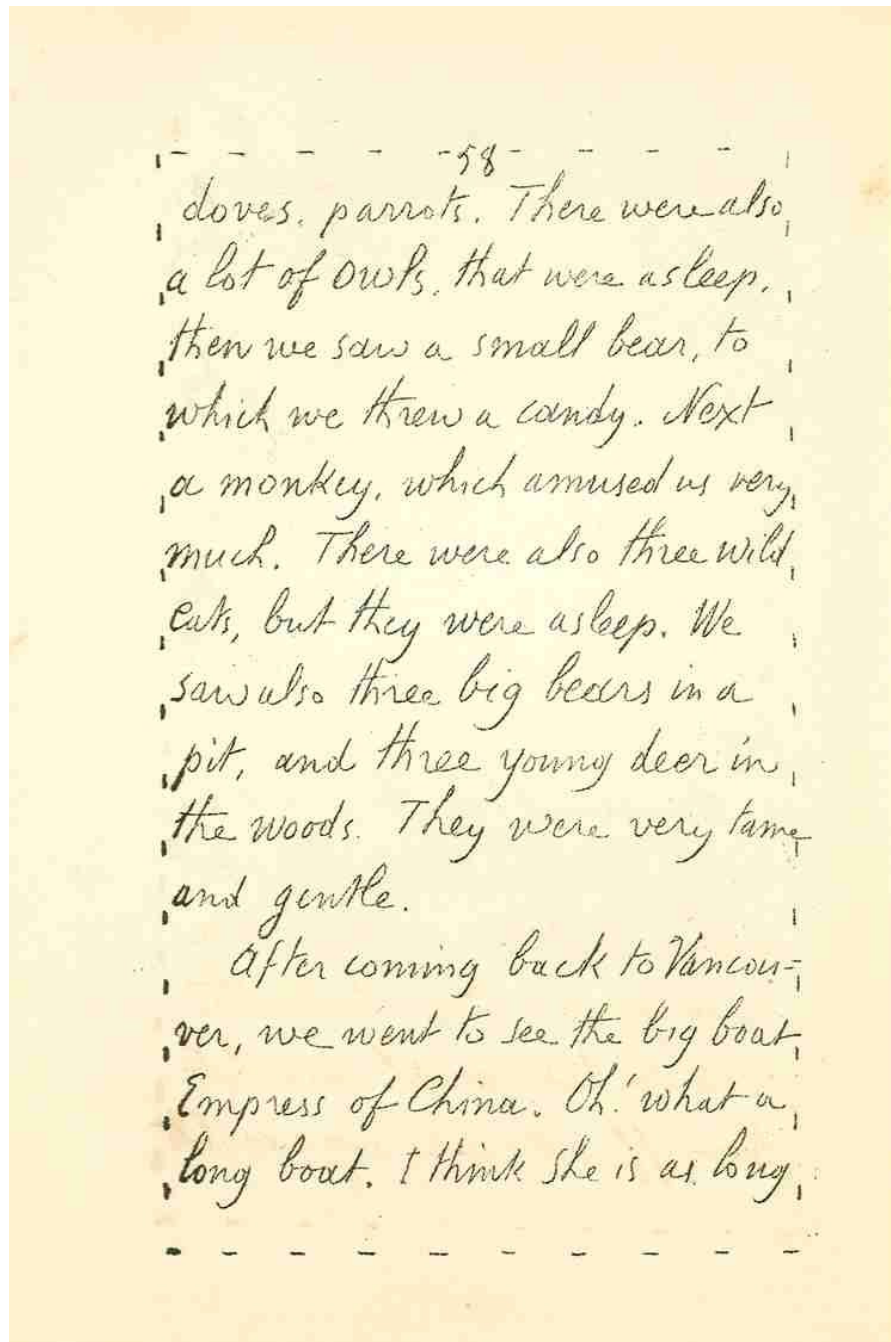 58
doves. parrots. There were also
a lot of owls, that were asleep,
then we saw a small bear, to
which we threw a candy. Next
a monkey, which amused us very
much. There were also three wild
cats, but they were asleep. We
saw also three big bears in a
pit, and three young deer in
the woods. They were very tame
and gentle.
After coming back to Vancou-
ver, we went to see the big boat
Empress of China. Oh! what a
long boat. I think she is as long